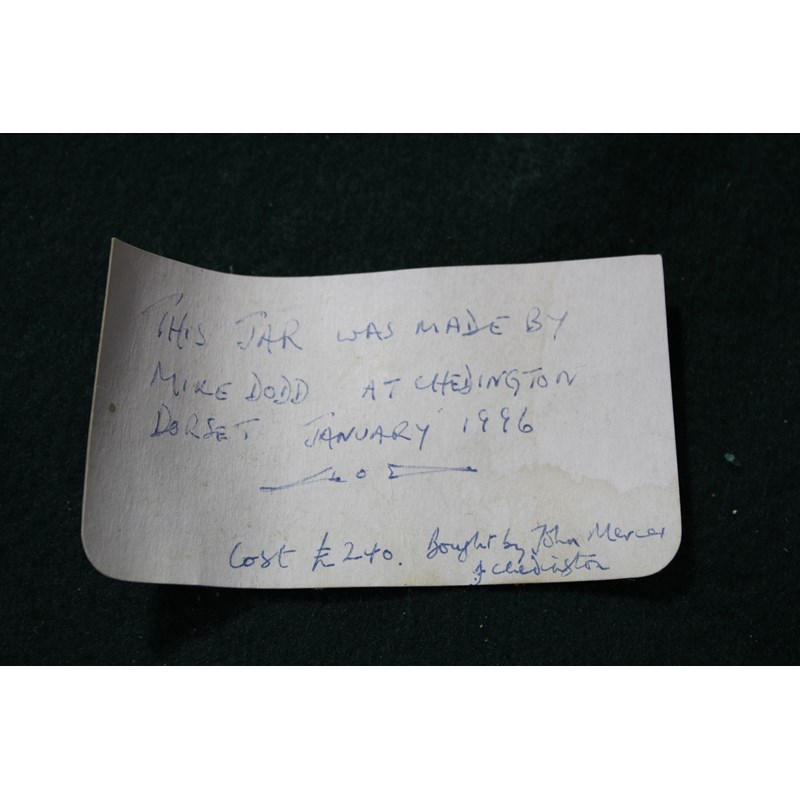 THIS JAR WAS MADE BY
MIKE DODD AT CHEDINGTON
DORSET JANUARY 1996
Cost £240. Bought by John Mercer
of Chedington